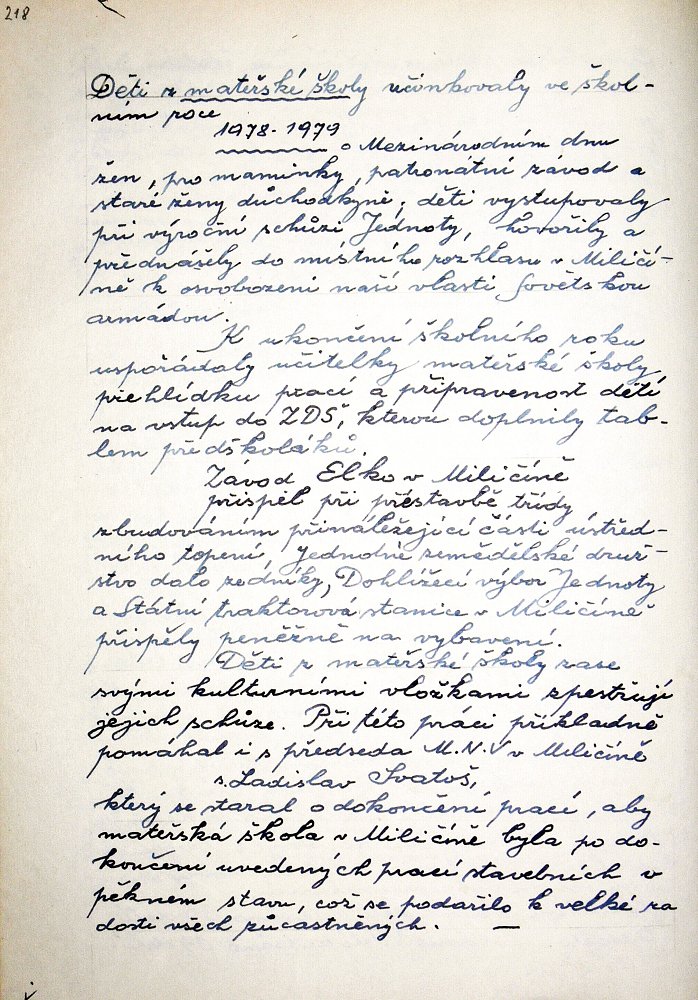 218
Děti z mateřské školy účinkovaly ve škol-
ním roce
1978-1979
o Mezinárodním dnu
žen, pro maminky, patronátní závod a
staré ženy důchodkyně, děti vystupovaly
při výroční schůzi Jednoty, hovořily a
přednášely do místního rozhlasu v Miličí-
ně k osvobození naší vlasti Sovětskou
armádou.
K ukončení školního roku
uspořádaly učitelky mateřské školy
přehlídku prací a připravenost dětí
na vstup do ZDŠ, kterou doplnily tab-
lem předškoláků.
Závod Elko v Miličíně
přispěl při přestavbě třídy
zbudováním přináležející části ústřed-
ního topení, Jednotné zemědělské druž-
stvo dalo zedníky, Dohlížecí výbor Jednoty
a Státní traktorová stanice v Miličíně
přispěly peněžně na vybavení.
Děti z mateřské školy zase
svými kulturními vložkami zpestřují
jejich schůze. Při této práci příkladně
pomáhal i s předseda M.N.V v Miličíně
s. Ladislav Svatoš,
který se staral o dokončení prací, aby
mateřská škola v Miličíně byla po do-
končení uvedených prací stavebních v
pěkném stavu, což se podařilo k velké ra
dosti všech zúčastněných. —